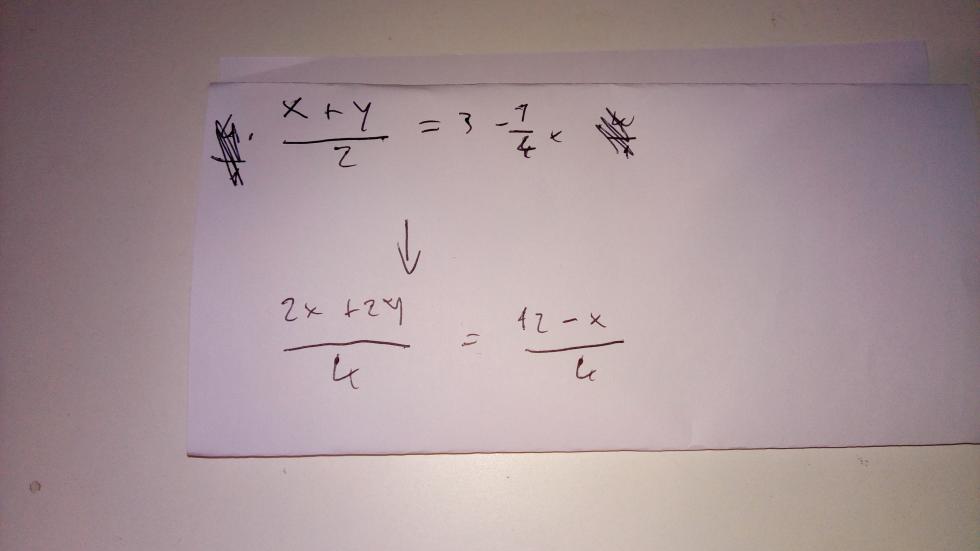 x + y / 2 = 3 - 1/4 x
↓
2x + 2y / 4 = 12 - x / 4